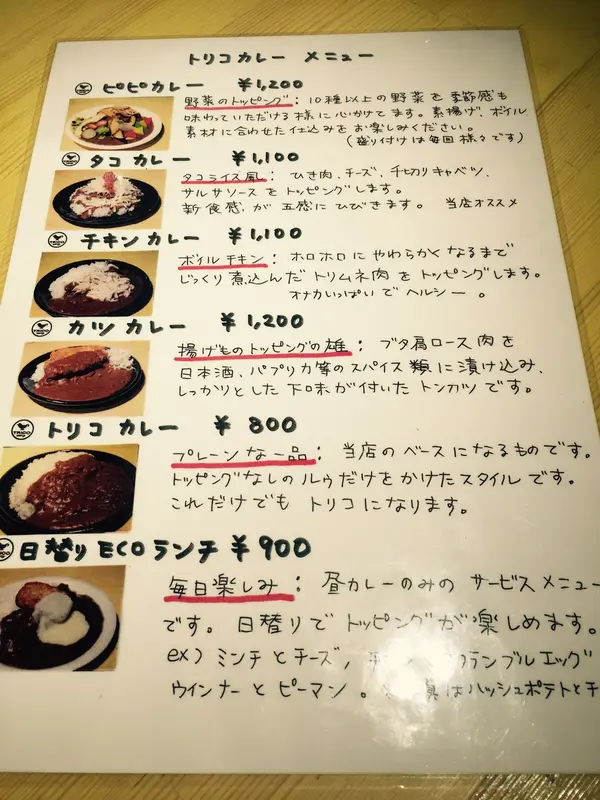 トリコカレー メニュー
ピピカレー ¥1,200
野菜のトッピング : 10種以上の野菜を季節感も
味わっていただける様に心かけてます。素揚げ、ボイル
素材に合わせた仕込みをお楽しみください。
(盛り付けは毎回様々です)
タコカレー ¥1,100
タコライス風 : ひき肉、チーズ、千切りキャベツ、
サルサソースをトッピングします。
新食感が五感にひびきます。 当店オススメ
チキンカレー ¥1,100
ボイルチキン : ホロホロにやわらかくなるまで
じっくり煮込んだトリムネ肉をトッピングします。
オナカいっぱいでヘルシー。
カツカレー ¥1,200
揚げものトッピングの雄 : ブタ肩ロース肉を
日本酒、パプリカ等のスパイス類に漬け込み、
しっかりとした下味が付いたトンカツです。
トリコカレー ¥800
プレーンな一品 : 当店のベースになるものです。
トッピングなしのルゥだけをかけたスタイルです。
これだけでもトリコになります。
日替りECOランチ ¥900
毎日楽しみ : 昼カレーのみのサービスメニュー
です。日替りでトッピングが楽しめます。
ex) ミンチとチーズ、 クランブルエッグ
ウインナーとピーマン。 真はハッシュポテトとチ